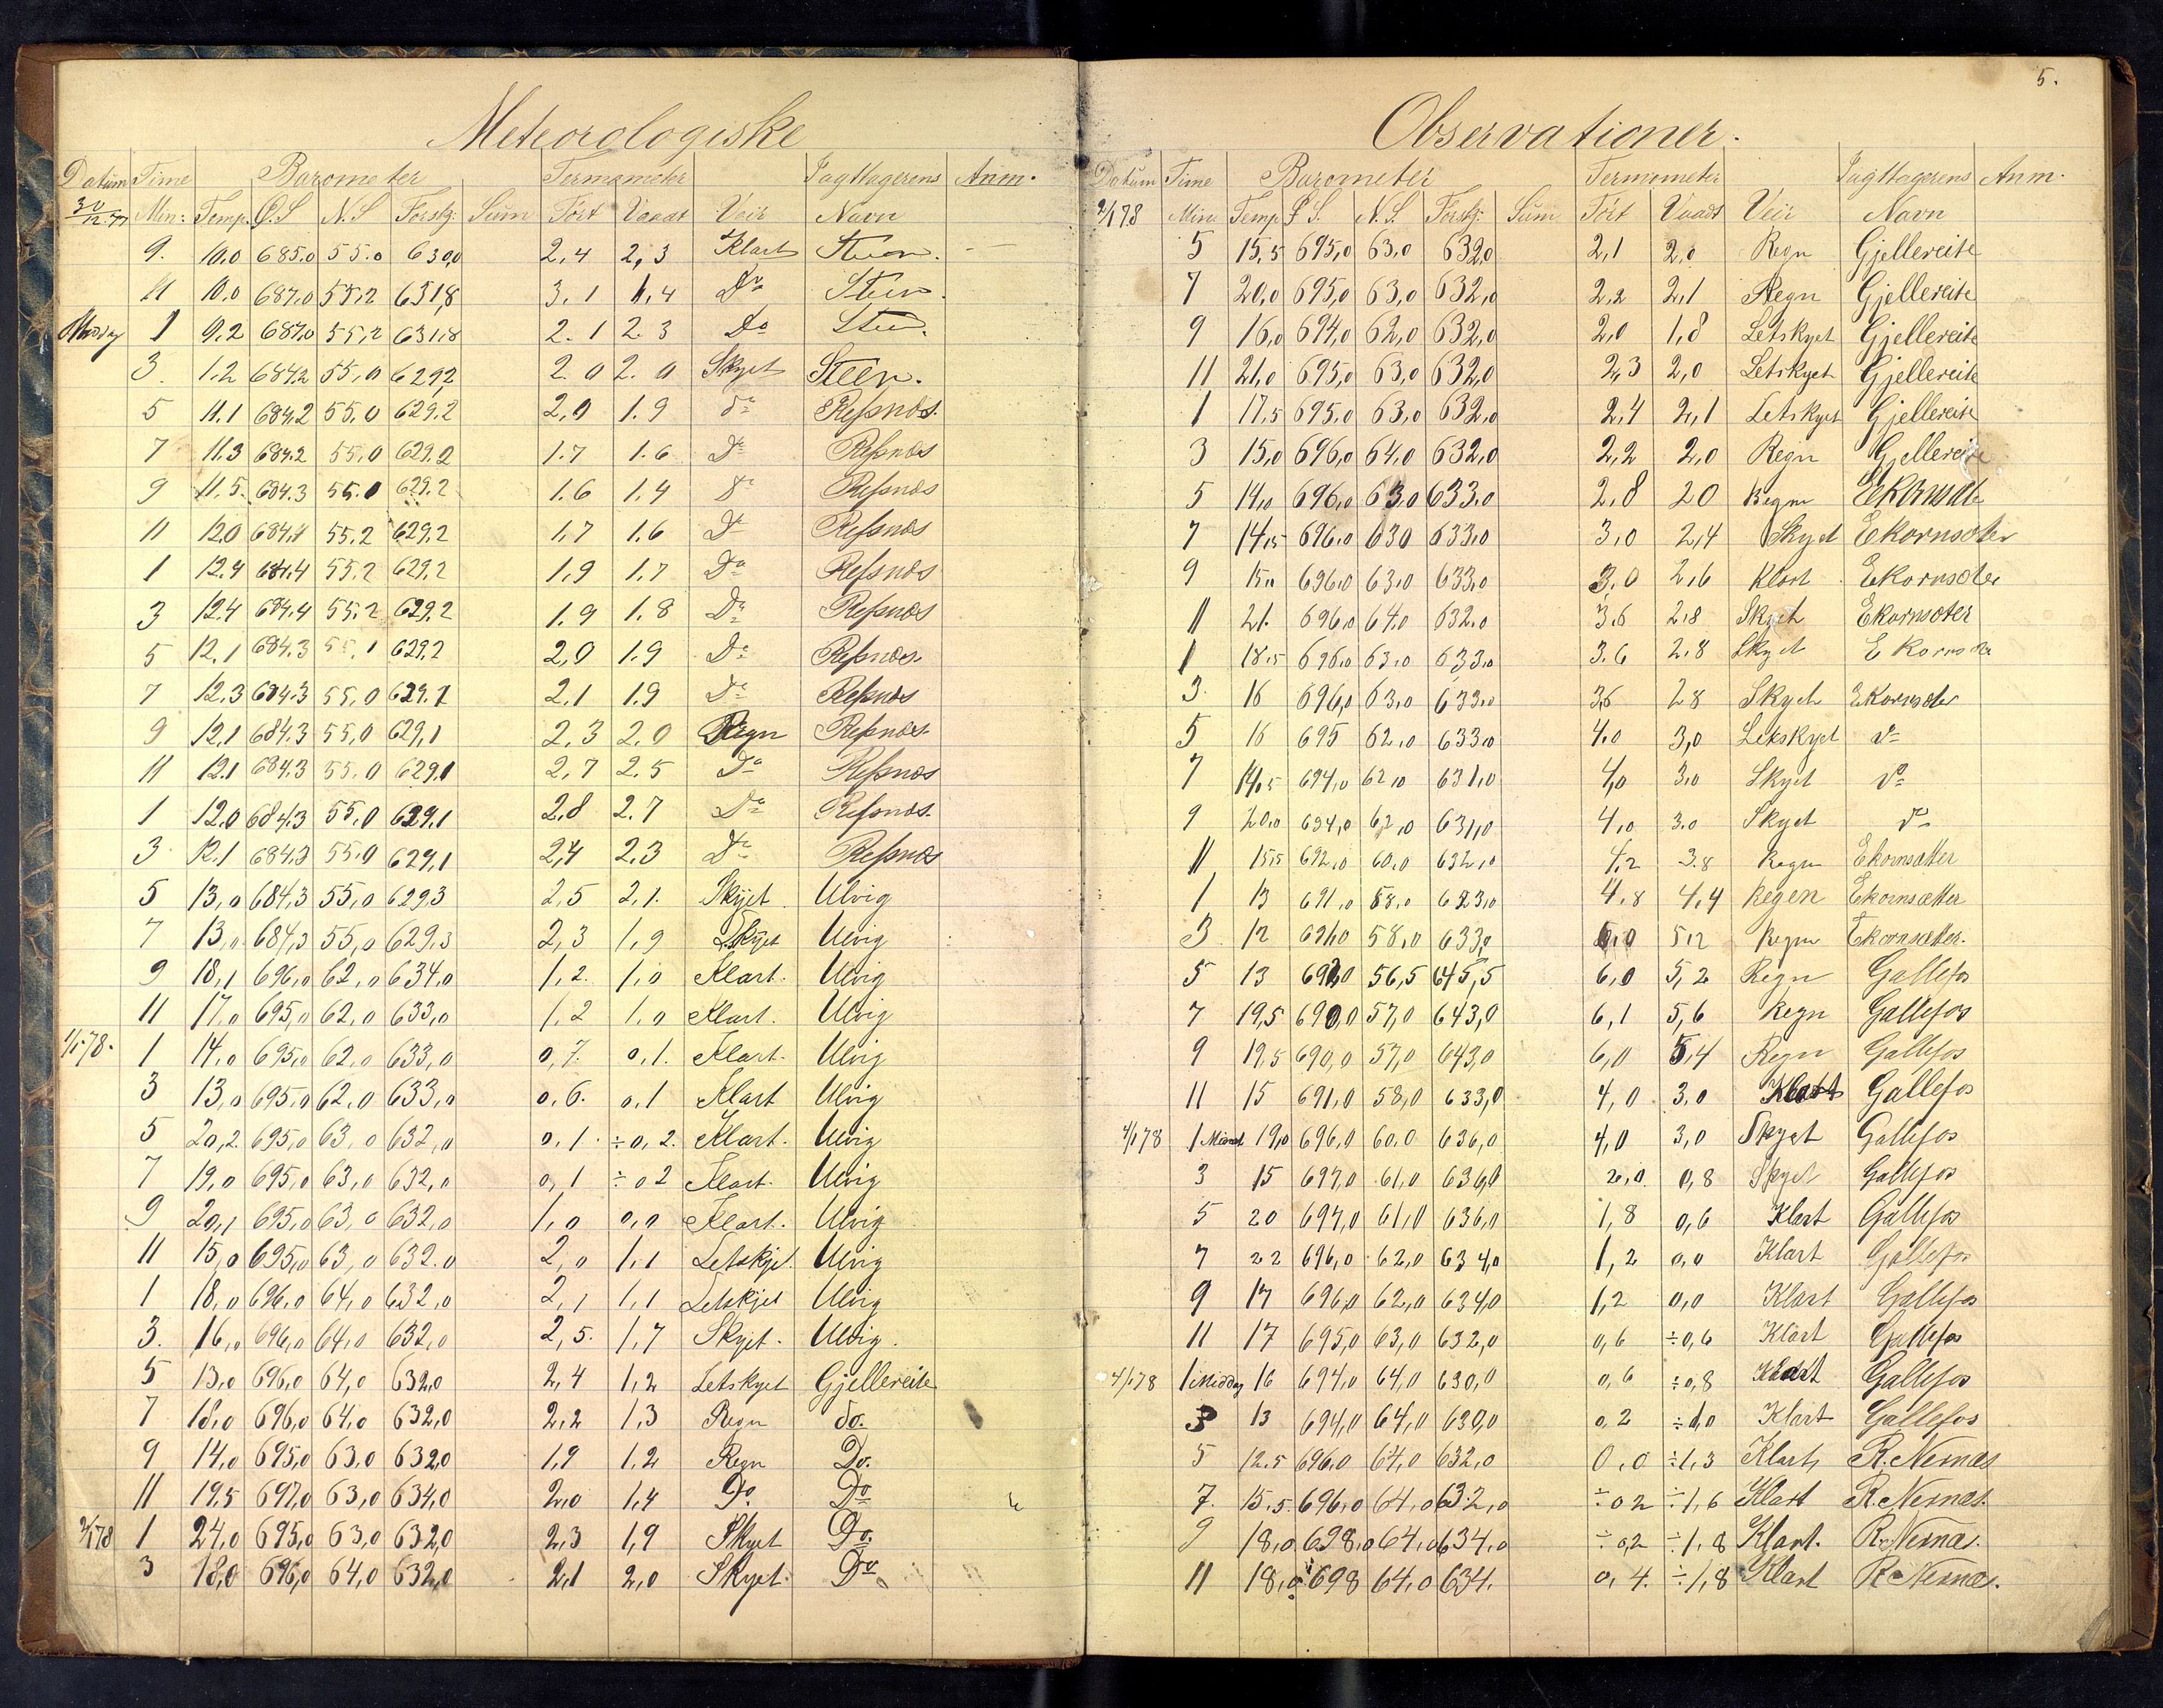 Meteorologiske
Datum Time Barometer Termometer Iagttagerens Anm.
30/12.77 Min: Temp. Ø.S N.S Forskj: Sum Tört Vaadt Veir Navn
9. 10,0 685,0 55.0 630,0 2,4 2,3 Klart Steen. —
11 10,0 687,0 55,2 631,8 3.1 1,4 Do Steen.
Middag 1 9,2 687,0 55,2 631,8 2.1 2.3 Do Steen.
3. 1.2 684.2 55,0 629,2 2.0 2.0 Skyet Steen.
5 11.1 684,2 55.0 629.2 2,0 1.9 do Refsnæs.
7 11.3 684.2 55.0 629.2 1.7 1.6 Do Refsnæs
9 11.5. 684.3 55.0 629.2 1.6 1.4 do Refsnæs
11 12.0 684.4 55.2 629.2 1.7 1.6 Do Refsnæs
1 12.4 684.4 55.2 629.2 1.9 1.7 Do Refsnæs
3 12.4 684.4 55.2 629.2 1.9 1.8 Do Refsnæs
5 12.1 684.3 55.1 629.2 2,0 1.9 Do Refsnæs.
7 12.3 684.3 55,0 629.1 2.1 1.9 Do Refsnæs
9 12,1 684.3 55,0 629,1 2.3 2.0 Regn Refsnæs.
11 12.1 684.3 55.0 629.1 2,7 2.5 Do Refsnæs
1 12.0 684.3 55.0 629.1 2.8 2.7 Do Refsnæs.
3 12.1 684.3 55.0 629,1 2,4 2.3 Do Refsnæs
5 13,0 684,3 55,0 629,3 2,5 2,1. Skyet Ulvig
7 13,0 684,3 55,0 629,3 2,3 1,9 Skyet Ulvig
9 18,1 696,0 62,0 634,0 1,2. 1,0 Klart. Ulvig
11 17,0 695,0 62,0 633,0 1,2 1,0 Klart. Ulvig
1/1-78. 1 14,0 695,0 62,0 633,0 0,7. 0,1. Klart. Ulvig
3 13,0 695,0 62,0 633,0 0,6. 0,1 Klart Ulvig
5 20,2 695,0 63,0 632,0 0,1. ÷0,2. Klart. Ulvig
7 19,0 695,0 63,0 632,0 0,1 ÷02 Klart. Ulvig
9 20,1 695,0 63,0 632,0 1,0 0,0 Klart. Ulvig
11 15,0 695,0 63,0 632.0 2,0 1,1 Letskjet. Ulvig
1 18,0 696,0 64,0 632,0 2,1 1,1 Letskjet Ulvig
3. 16,0 696,0 64,0 632,0 2,5. 1,7 Skyet. Ulvig.
5 13,0 696,0 64,0 632,0 2,4 1,2 Letskyet Gjellereite
7 18,0 696,0 64,0 632,0 2,2 1,3 Regn do.
9 14,0 695,0 63,0 632,0 1,9 1,2 Regn Do.
11 19,5 697,0 63,0 634,0 2,0 1,4 Do. Do
2/1 78 1 24,0 695,0 63,0 632,0 2,3 1,9 Skyet Do.
3 18,0 696,0 64,0 632,0 2,1 2,0 Skyet. Do
5.
Observationer.
Datum Time Barometer Termometer Iagttagerens Anm.
2/1 78 Min Temp Ø S. N.S. Forskj: Sum Tört Vaadt Veir Navn
5 15,5 695,0 63,0 632,0 2,1 2,0 Regn Gjellereite
7 20,0 695,0 63,0 632,0 2,2 2,1 Regn Gjellereite
9 16,0 694,0 62,0 632,0 2,0 1,8 Letskyet Gjellereite
11 21,0 695,0 63,0 632,0 2,3 2,0 Letskyet Gjellereite
1 17,5 695,0 63,0 632,0 2,4 2,1 Letskyet Gjellereite
3 15,0 696,0 64,0 632,0 2,2 2,0 Regn Gjellereite
5 14,0 696,0 63,0 633,0 2,8 20 Regn Ekornsæter
7 14,5 696,0 630 633,0 3,0 2,4 Skyet Ekornsæter
9 15,0 696,0 63,0 633,0 3,0 2,6 Klart Ekornsæter
11 21. 696,0 64,0 632.0 3.6 2,8 Skyet Ekornsæter
1 18,5 696,0 63,0 633,0 3.6 2,8 Skyet Ekornsæter
3. 16 696,0 63,0 633,0 3,6 28 Skyet Ekornsæter
5 16 695 62,0 633,0 4.0 3,0 Letskyet do
7 14,5 694,0 62,0 631,0 4,0 3,0 Skyet do
9 20,0 694,0 62,0 631,0 4,0 3.0 Skyet do
11 15,5 692,0 60,0 632,0 4,2 3.8 Regn Ekornsætter
1 13 691,0 58,0 623,0 4,8 4,4 Regen Ekornsætter
3 12 691,0 58,0 633,0 5,0 5,2 Regn Ekornsæter.
5 13 692,0 56,5 645,5 6,0 5,2 Regn Gallefos
7 19,5 690,0 57,0 643,0 6,1 5,6 Regn Gallefos
9 19,5 690,0 57,0 643,0 6,0 5,4 Regn Gallefos
11 15 691,0 58,0 633,0 4,0 3.0 Klart Gallefos
4/1 78 1 19,0 696,0 60.0 636,0 4,0 3,0 Skyet Gallefos
3 15 697,0 61,0 636,0 2,0 0,8 Skyet Gallefos
5 20 697,0 61,0 636,0 1,8 0,6 Klart Gallefos
7 22 696,0 62,0 634,0 1,2 0,0 Klart Gallefos
9 17 696,0 62,0 634,0 1,2 0,0 Klart Gallefos
11 17 695,0 63,0 632,0 0,6 ÷0,6 Klart Gallefos
4/1 78 1 Middag 16 694,0 64,0 630,0 0,6 ÷0,8 Klart Gallefos
3 13 694,0 64,0 630,0 0,2 ÷1,0 Klart Gallefos
5 12.5 696,0 64,0 632,0 0,0 ÷1,3 Klart, R. Nernæs
7. 15.5. 696,0 64,0 632,0 ÷02 ÷1,6 Klart R. Nernæs.
9 18,0 698,0 64,0 634,0 ÷0,2 ÷1,8 Klart. R. Nernæs.
11 18,0 698 64,0 634. 0,4. ÷1,8 Klart R. Nernæs.